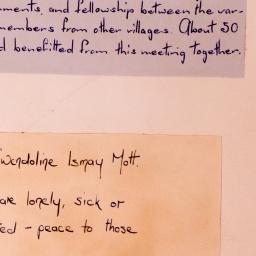 ments, and fellowship between the var-
members from other villages. About 50
d benefitted from this meeting together.
wendoline Ismay Mott.
are lonely, sick or
ed - peace to those